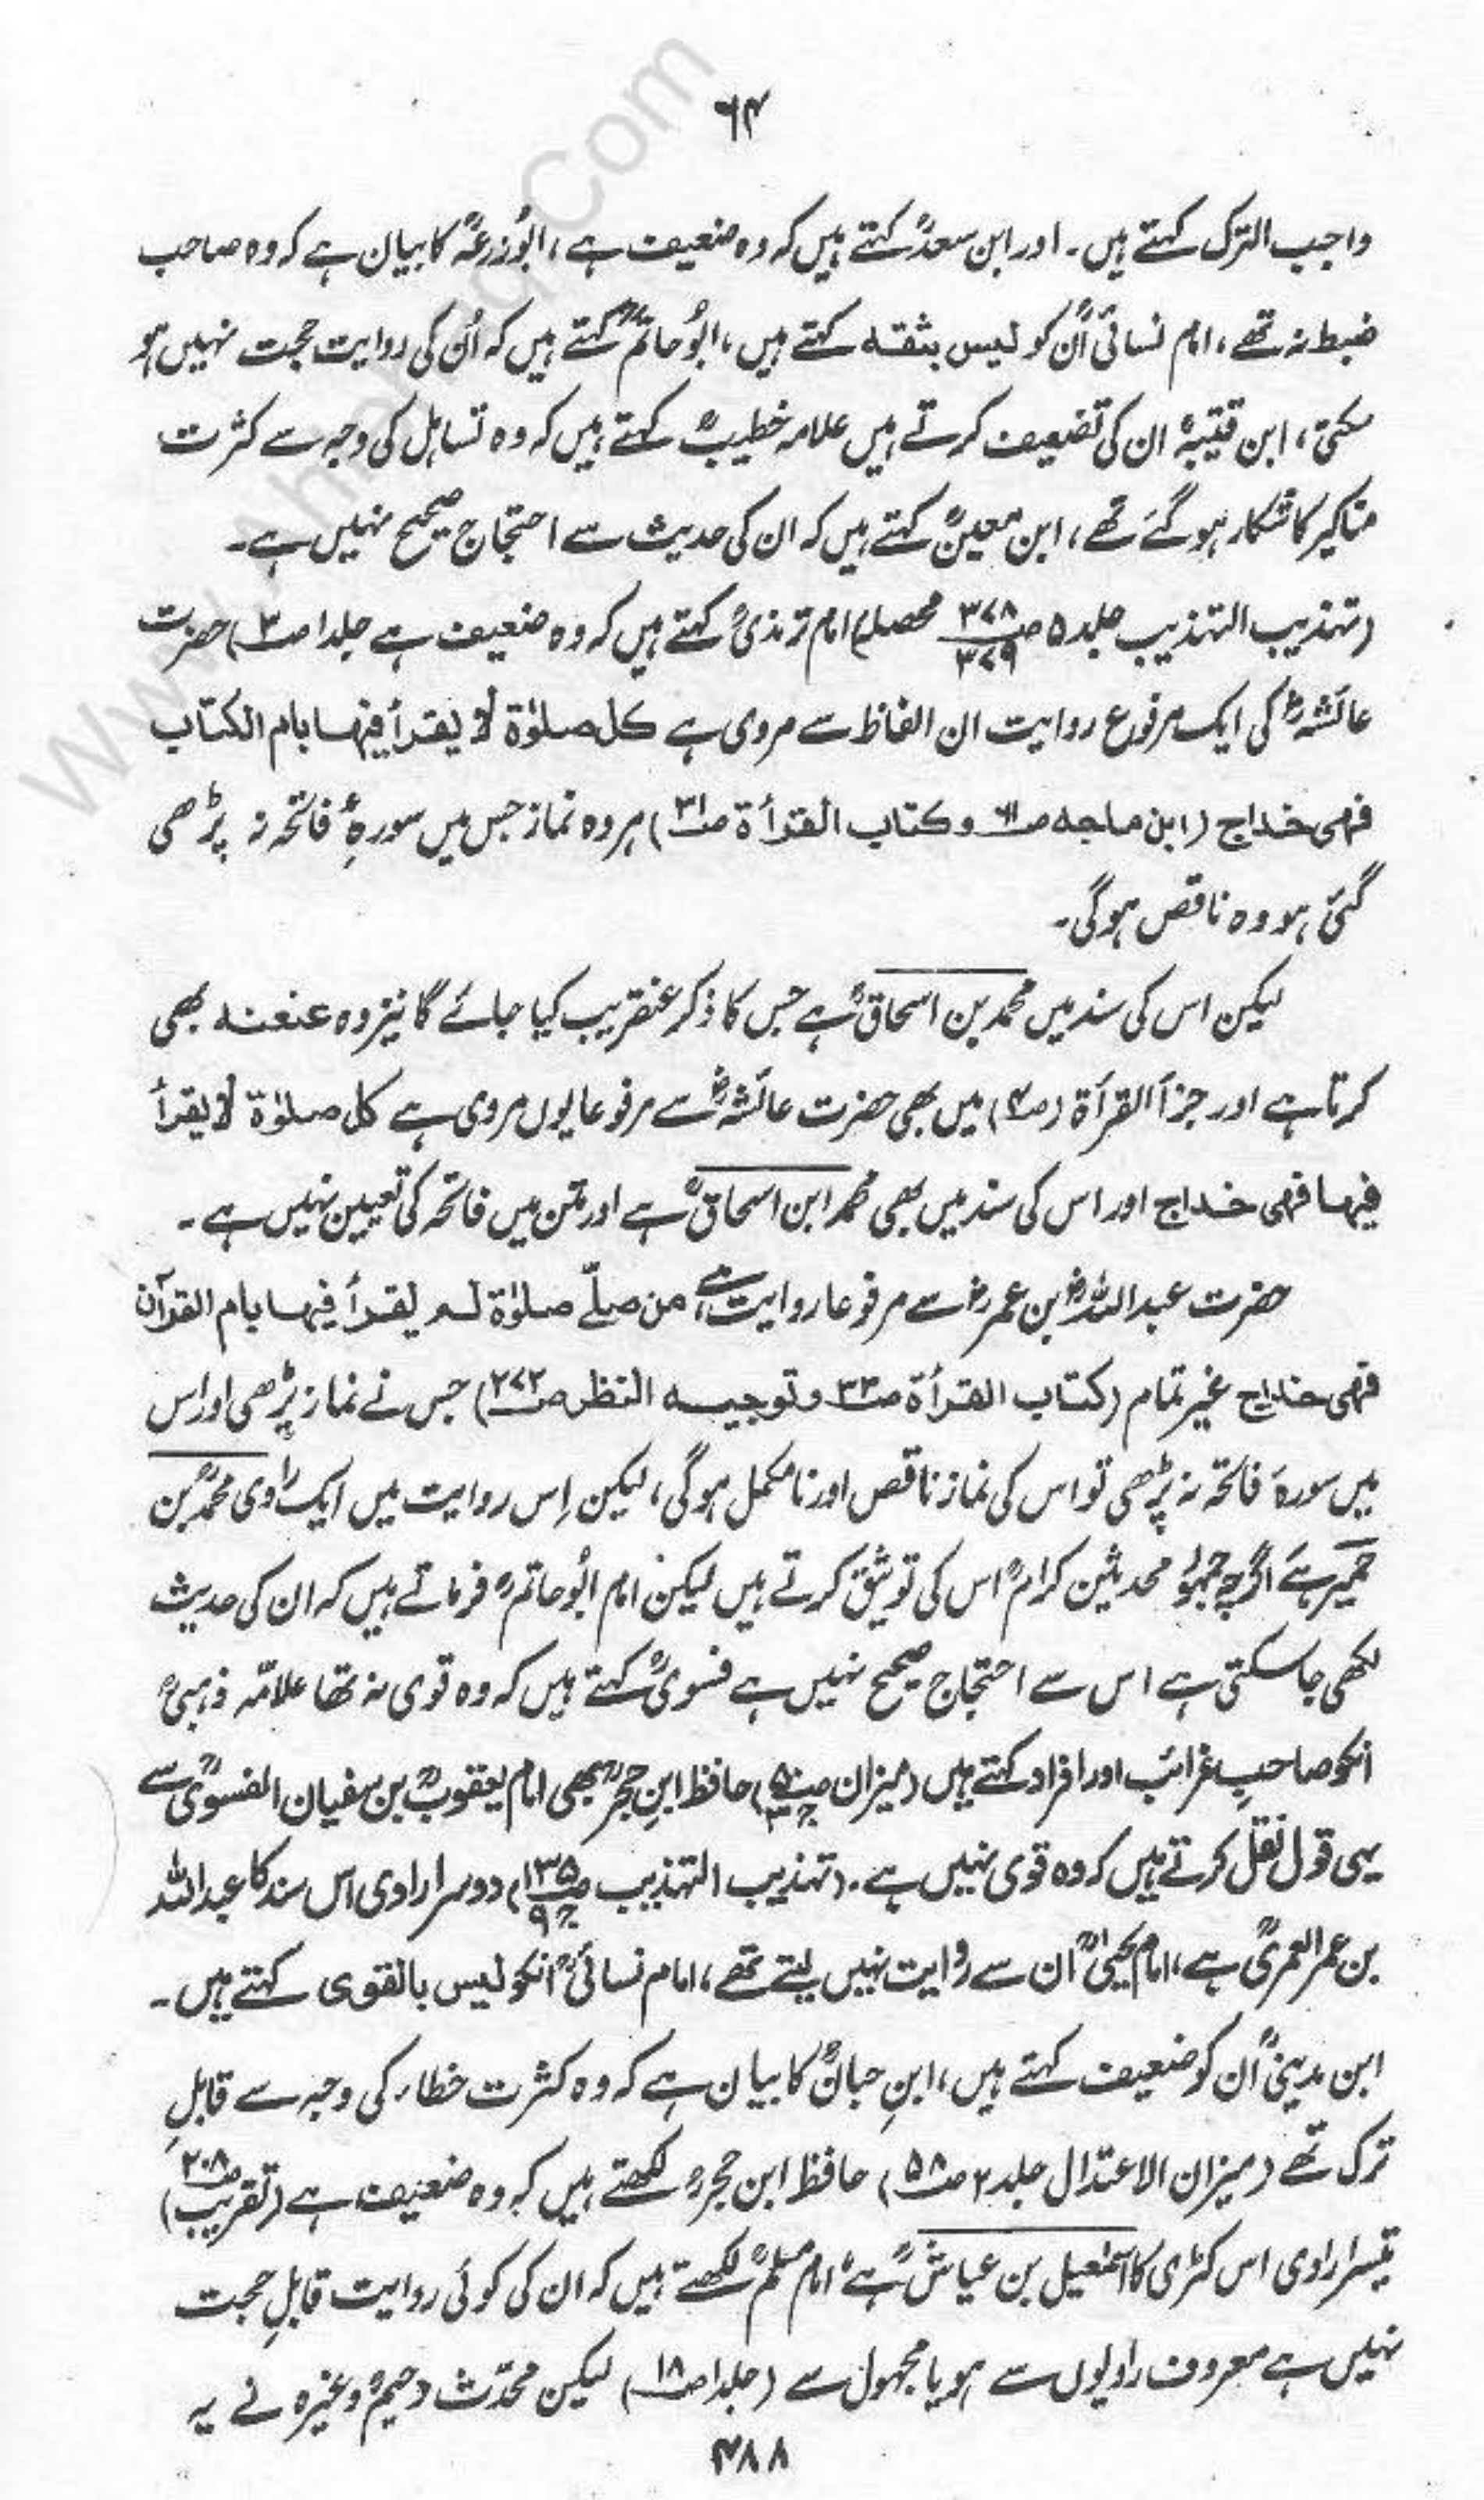 ۶۴
واجب الترک کہتے ہیں۔ اور ابن سعدؒ کہتے ہیں کہ وہ ضعیف ہے، ابُو زرعہؒ کا بیان ہے کہ وہ صاحب
ضبط نہ تھے، امام نسائیؒ اُن کو لیس بثقہ کہتے ہیں، ابُو حاتمؒ کہتے ہیں کہ اُن کی روایت حجت نہیں ہو
سکتی، ابن قتیبہؒ ان کی تضعیف کرتے ہیں علامہ خطیبؒ کہتے ہیں کہ وہ تساہل کی وجہ سے کثرت
مناکیر کا شکار ہو گئے تھے، ابن معینؒ کہتے ہیں کہ ان کی حدیث سے احتجاج صحیح نہیں ہے۔
(تہذیب التہذیب جلد ۵ ص ۳۷۸ ۳۷۹ محصلہ) امام ترمذیؒ کہتے ہیں کہ وہ ضعیف ہے جلد ا ص۳) حضرت
عائشہؓ کی ایک مرفوع روایت ان الفاظ سے مروی ہے کل صلوٰۃ لا یقرأ فیہا بام الکتاب
فہی خداج (ابن ماجہ ص۶۱ وکتاب القرأۃ ص۳۱) ہر وہ نماز جس میں سورۂ فاتحہ نہ پڑھی
گئی ہو وہ ناقص ہوگی۔
لیکن اس کی سند میں محمد بن اسحاقؒ ہے جس کا ذکر عنقریب کیا جائے گا نیز وہ عنعنہ بھی
کرتا ہے اور جزأ القرأۃ (ص۴) میں بھی حضرت عائشہؓ سے مرفوعا یوں مروی ہے کل صلوٰۃ لا یقرأ
فیہا فہی خداج اور اس کی سند میں بھی محمد ابن اسحاقؒ ہے اور متن میں فاتحہ کی تعیین نہیں ہے۔
حضرت عبد اللہؓ بن عمرؓ سے مرفوعا روایت ہے من صلّے صلوٰۃ لم یقرأ فیہا بام القرآن
فہی خداج غیر تمام (کتاب القرأۃ ص۳۳ و توجیہ النظر ص۲۷۲) جس نے نماز پڑھی اور اس
میں سورۃ فاتحہ نہ پڑھی تو اس کی نماز ناقص اور نامکمل ہوگی، لیکن اِس روایت میں ایک راوی محمدؒ بن
حمیر ہے اگرچہ جمہور محدثین کرامؒ اس کی توثیق کرتے ہیں لیکن امام ابُو حاتمؒ فرماتے ہیں کہ ان کی حدیث
لکھی جا سکتی ہے اس سے احتجاج صحیح نہیں ہے فسویؒ کہتے ہیں کہ وہ قوی نہ تھا علامّہ ذہبیؒ
انکو صاحبِ غرائب اور افراد کہتے ہیں (میزان ص۵۰ ج۳) حافظ ابنِ حجرؒ بھی امام یعقوبؒ بن سفیان الفسویؒ سے
یہی قول نقل کرتے ہیں کہ وہ قوی نہیں ہے۔ (تہذیب التہذیب ص۱۳۵ ج۹) دوسرا راوی اس سند کا عبد اللہ
بن عمر العمریؒ ہے، امام یحییٰؒ ان سے روایت نہیں لیتے تھے، امام نسائیؒ انکو لیس بالقوی کہتے ہیں۔
ابن مدینیؒ اُن کو ضعیف کہتے ہیں، ابنِ حبانؒ کا بیان ہے کہ وہ کثرت خطاء کی وجہ سے قابلِ
ترک تھے (میزان الاعتدال جلد ۲ ص۵۸) حافظ ابن حجرؒ لکھتے ہیں کہ وہ ضعیف ہے (تقریب ص۲۰۸)
تیسرا راوی اس کڑی کا اسمٰعیل بن عیاشؒ ہے امام مسلمؒ لکھتے ہیں کہ ان کی کوئی روایت قابلِ حجت
نہیں ہے معروف راویوں سے ہو یا مجہول سے (جلد ا ص۱۸) لیکن محدّث دحیمؒ وغیرہ نے یہ
۴۸۸